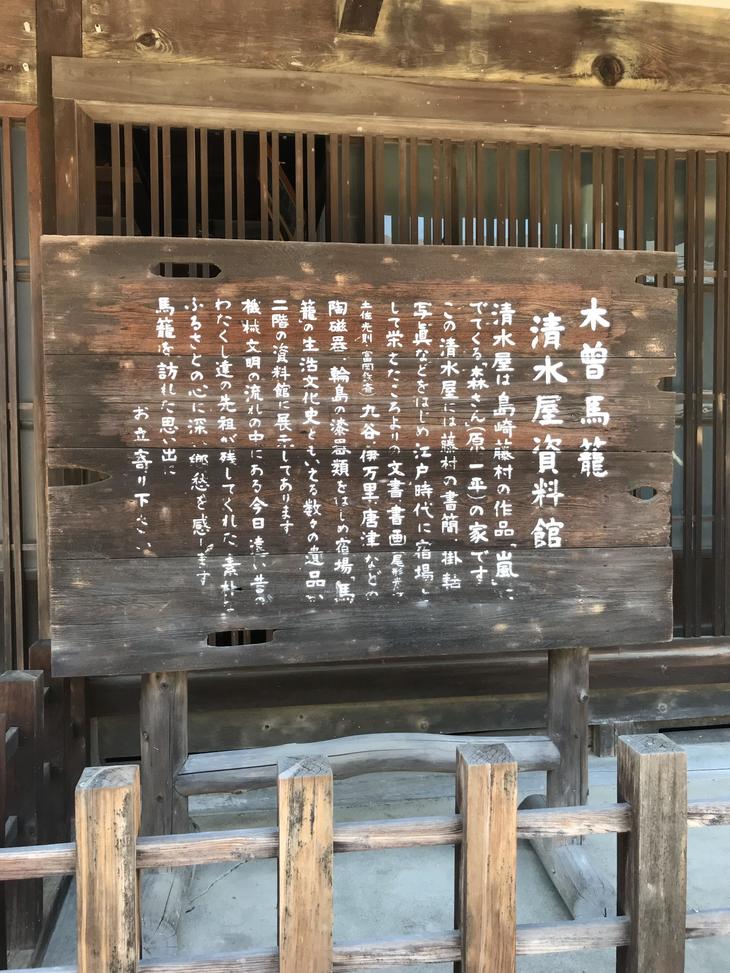 木曽馬籠
清水屋資料館
清水屋は島崎藤村の作品「嵐」に
でてくる“森さん”(原一平)の家です
この清水屋には藤村の書簡、掛軸
写真などをはじめ江戸時代に宿場と
して栄えたころよりの文書書画(尾形
土佐光則 富岡鉄斎)九谷、伊万里、唐津などの
陶磁器、輪島の漆器類をはじめ宿場「馬
籠」の生活文化史ともいえる数々の遺品が
二階の資料館に展示してあります
機械文明の流れの中にある今日遠い昔の
わたくし達の先祖が残してくれた素朴な
ふるさとの心に深い郷愁を感じます
馬籠を訪れた思い出に
お立寄り下さい